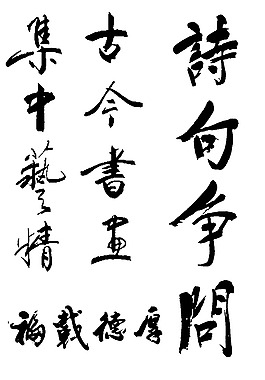 詩句争問
古今書畫
集中藝情
厚德載福